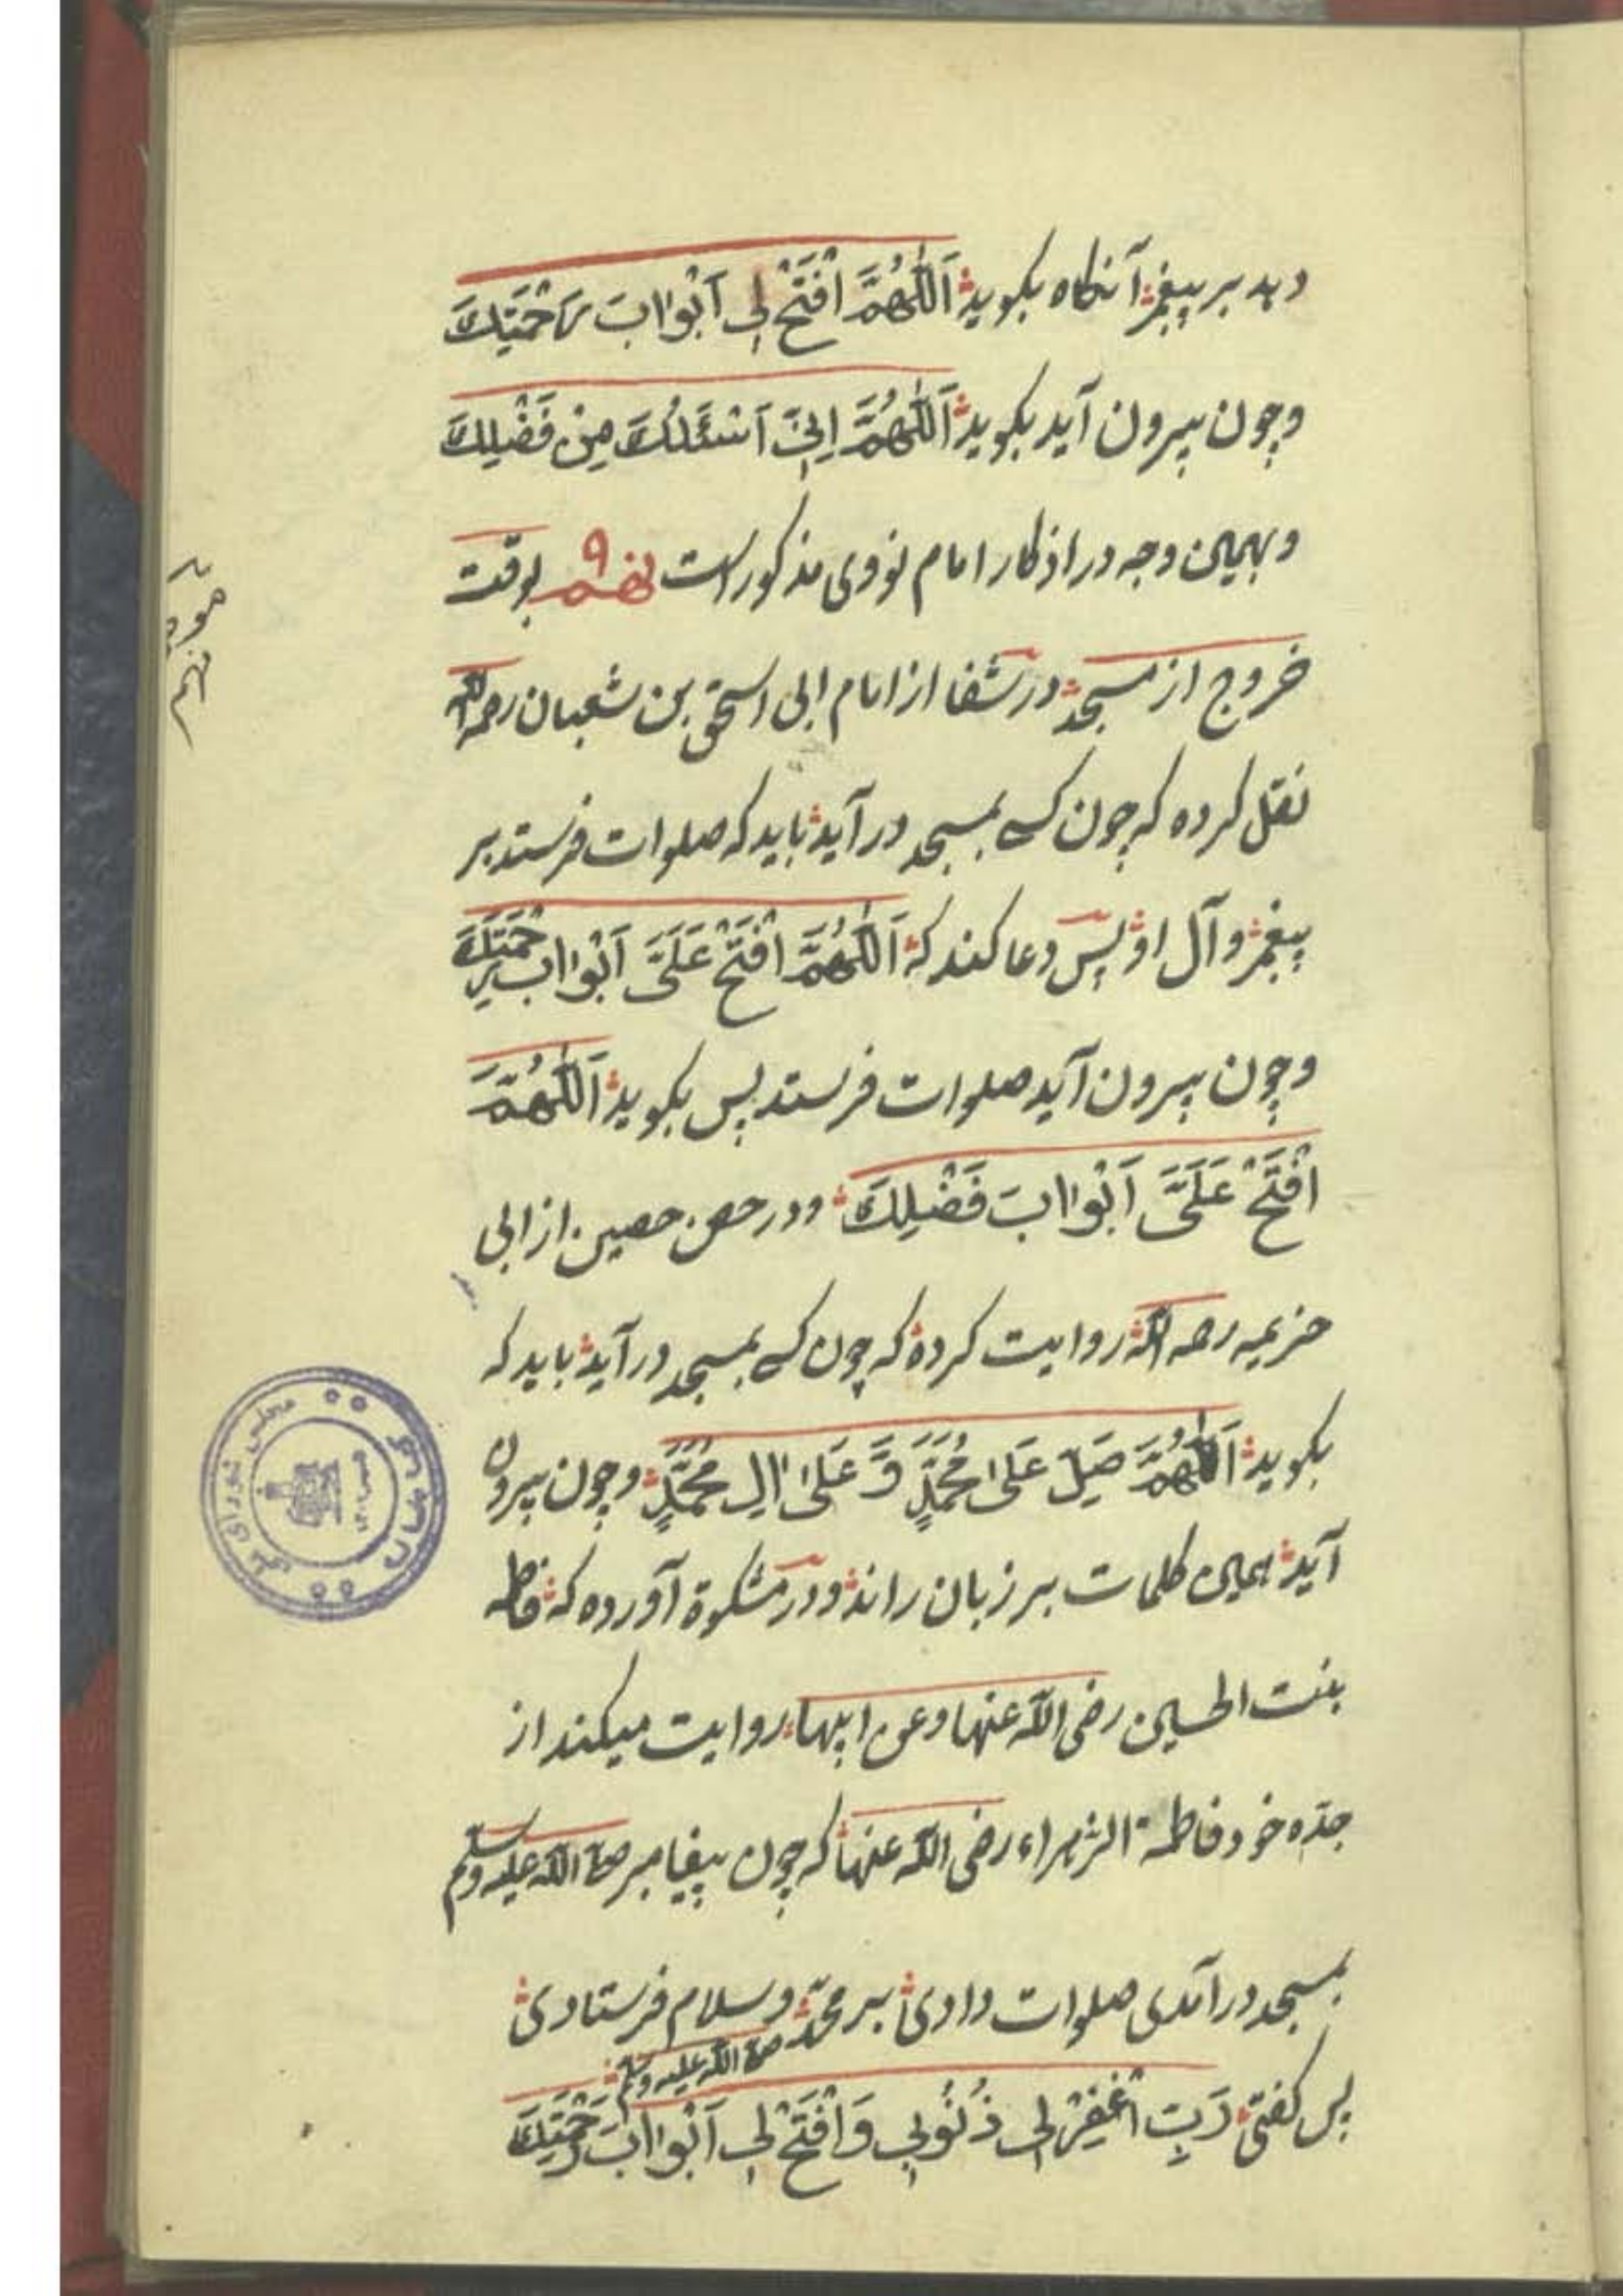 دهد بر پیغمبر آنکاه بکوید اَللّٰهُمَّ افْتَحْ لِی اَبْوابَ رَحْمَتِكَ
وچون بیرون آید بکوید اَللّٰهُمَّ اِنِّی اَسْئَلُكَ مِنْ فَضْلِكَ
وبهمین وجه در اذکار امام نووی مذکور است نهم ۹ بوقت
خروج از مسجد در شفا از امام ابی اسحق بن شعبان رحمه الله
نقل کرده که چون کسی بمسجد در آید باید که صلوات فرستد بر
پیغمبر و آل او پس دعا کند که اَللّٰهُمَّ افْتَحْ عَلَیَّ اَبْوابَ رَحْمَتِكَ
وچون بیرون آید صلوات فرستد پس بکوید اَللّٰهُمَّ
افْتَحْ عَلَیَّ اَبْوابَ فَضْلِكَ ودر حصن حصین از ابی
خزیمه رحمه الله روایت کرده که چون کسی بمسجد در آید باید که
بکوید اَللّٰهُمَّ صَلِّ عَلیٰ مُحَمَّدٍ وَّ عَلیٰ اٰلِ مُحَمَّدٍ وچون بیرون
آید همین کلمات بر زبان راند ودر مشکوة آورده که فاطمه
بنت الحسین رضی الله عنها وعن ابیها روایت میکند از
جدّه خود فاطمة الزهراء رضی الله عنها که چون پیغامبر صلی الله علیه وسلم
بمسجد در آمدی صلوات دادی بر محمّد وسلام فرستادی
صلی الله علیه وسلم
پس کفتی رَبِّ اغْفِرْ لِی ذُنُوبِی وَافْتَحْ لِی اَبْوابَ رَحْمَتِكَ
نهم
مجلس شورای